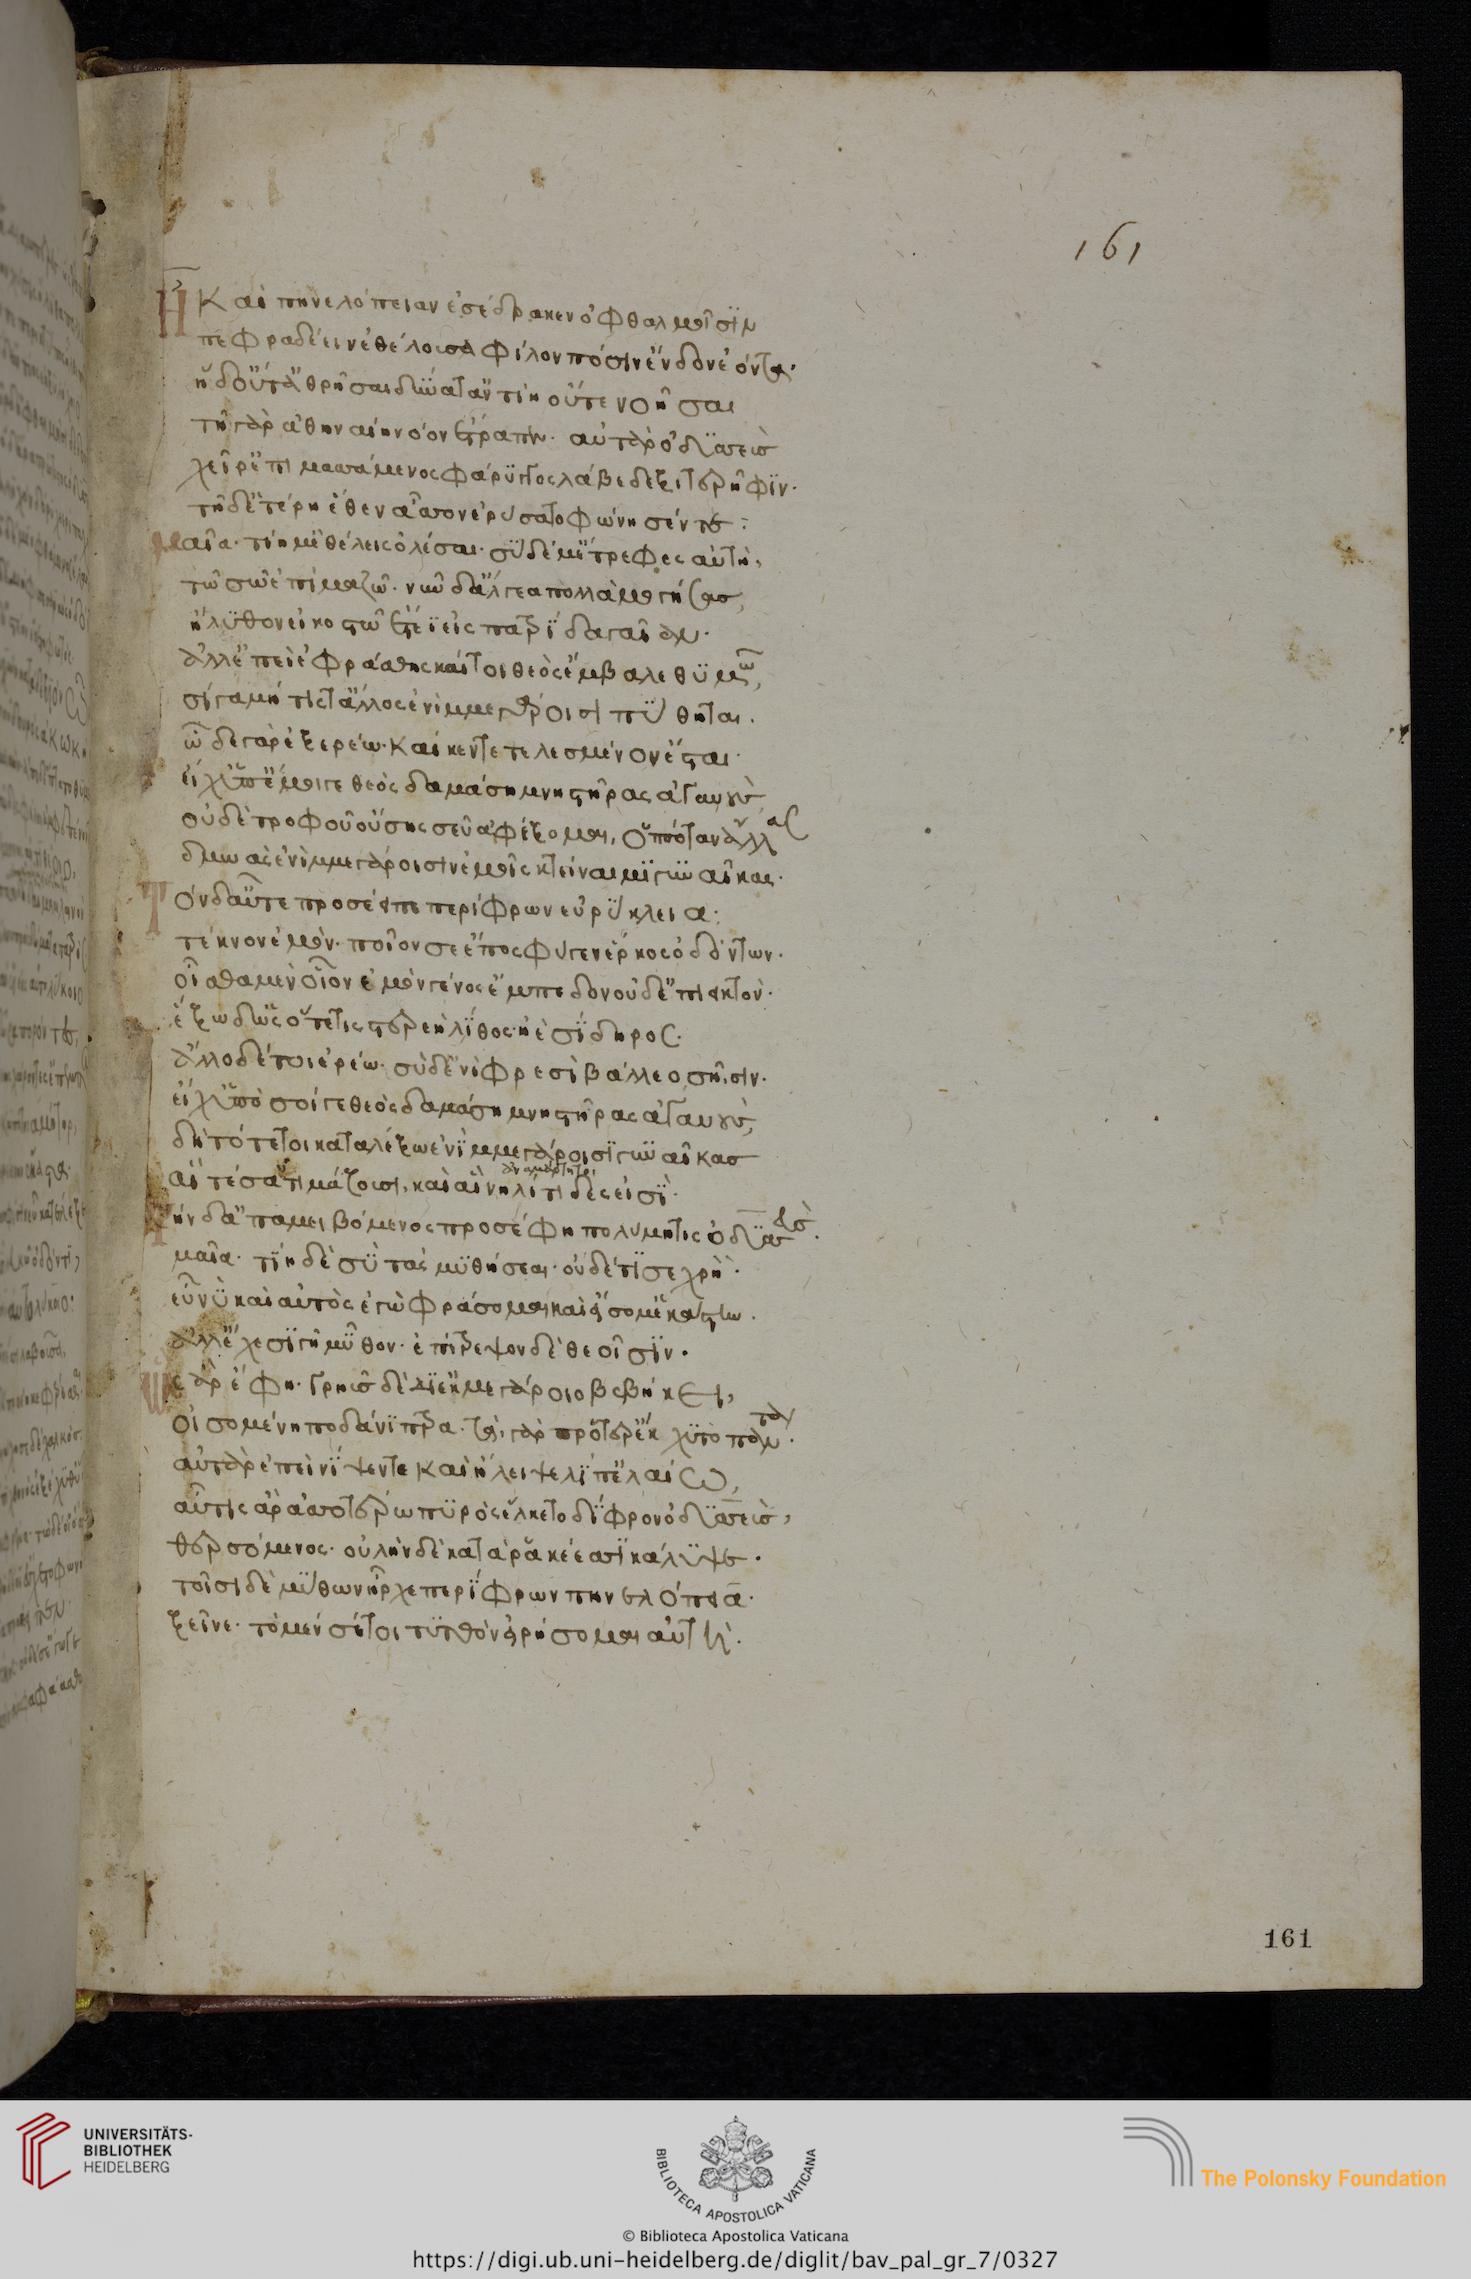 161
Ἦ Καὶ πηνελόπειαν ἐσέδρακεν ὀφθαλμοῖσϊν
πεφραδέειν ἐθέλουσα φίλον πόσιν ἔνδον ἐόντα·
ἡ δ' οὔτ' ἀθρῆσαι δύνατ' ἀντίη οὔτε νοῆσαι
τῆ γὰρ ἀθηναίη νόον ἔτραπεν· αὐτὰρ ὀδϋσσεὺσ
χεῖρ' ἐπιμασσάμενος φάρϋγος λάβε δεξιτερῆφϊν·
τῆ δ' ἑτέρη ἕθεν ἆσσον ἐρύσατο φώνησέν τε·
μαῖα· τίη μ' ἐθέλεις ὀλέσαι· σὺ δέ μ' ἔτρεφες αὐτὴ,
τῶ σῶ ἐπὶ μαζῶ· νῦν δ' ἄλγεα πολλὰ μογήσας,
ἤλϋθον εἰκοστῶ ἔτεϊ εἰς πατρΐδα γαῖαν·
ἀλλ' ἐπεὶ ἐφράσθης καί τοι θεὸς ἔμβαλε θϋμῶ,
σίγα μή τίς τ' ἄλλος ἐνὶ μμεγάροισι πύθηται.
ὧδε γὰρ ἐξερέω· Καί κεν τετελεσμένον ἔσται·
εἴ χ' ὑπ' ἔμοιγε θεὸς δαμάση μνηστῆρας ἀγαυοὺς,
οὐδὲ τροφοῦ οὔσης σεῦ ἀφέξομαι, ὁππόταν ἄλλας
δμωὰς ἐνὶ μμεγάροισιν ἐμοῖς κτείναιμι γυναῖκας·
Τόνδ' αὖτε προσέειπε περίφρων εὐρύκλεια·
τέκνον ἐμὸν· ποῖόν σε ἔπος φύγεν ἕρκος ὀδόντων·
οἶσθα μὲν οἷον ἐμὸν μένος ἔμπεδον οὐδ' ἐπιεικτόν·
ἕξω δ' ὡς ὅτε τις στερεὴ λίθος· ἠὲ σΐδηρος·
ἄλλο δέ τοι ἐρέω· σὺ δ' ἐνὶ φρεσὶ βάλλεο σῆισιν·
εἴ χ' ὑπὸ σοί γε θεὸς δαμάση μνηστῆρας ἀγαυοὺς,
δὴ τότε τοι καταλέξω ἐνὶ μμεγάροισϊ γυναῖκασ
ἀναμάρτητοι
αἵ τέ σ' ἀτιμάζουσι, καὶ αἳ νηλίτιδές εἰσϊ·
Τήν δ' ἀπαμειβόμενος προσέφη πολύμητις ὀδϋσσεὺσ·
μαῖα· τίη δὲ σὺ τὰς μϋθήσεαι· οὐδέ τΐ σε χρὴ·
εὖ νϋ καὶ αὐτὸς ἐγὼ φράσομαι καὶ εἴσομ' ἑκάστην·
ἀλλ' ἔχε σιγῆ μῦθον· ἐπίτρεψον δὲ θεοῖσϊν·
Ὣς ἄρ' ἔφη· Γρηῢς δὲ διὲκ μεγάροιο βεβήκει,
οἰσομένη ποδάνιπτρα· τὰ γὰρ πρότερ' ἔκχϋτο πάντα·
αὐτὰρ ἐπεὶ νίψεν τε Καὶ ἤλειψε λίπ' ἐλαίω,
αὖτις ἄρ' ἀσσοτέρω πϋρὸς εἵλκετο δίφρον ὀδϋσσεὺσ,
θερσόμενος· οὐλὴν δὲ κατὰ ῥακέεσσι κάλϋψε·
τοῖσι δὲ μύθων ἦρχε περίφρων πηνελόπεια·
ξεῖνε· τὸ μέν σ' ἔτι τυτθὸν εἰρήσομαι αὐτὴ·
161
UNIVERSITÄTS-
BIBLIOTHEK
HEIDELBERG
BIBLIOTECA APOSTOLICA VATICANA
The Polonsky Foundation
© Biblioteca Apostolica Vaticana
https://digi.ub.uni-heidelberg.de/diglit/bav_pal_gr_7/0327